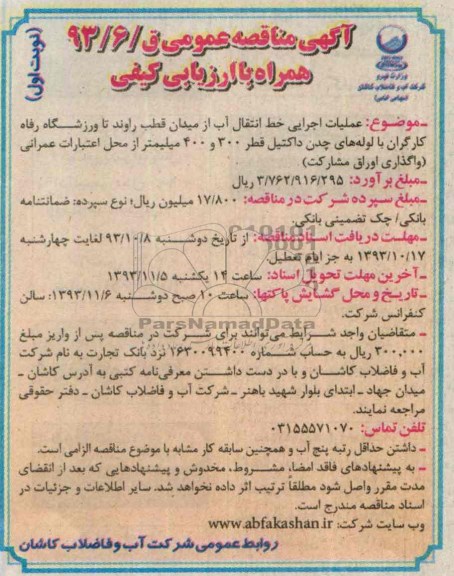 آگهی مناقصه عمومی ق/۹۳/۶
همراه با ارزیابی کیفی
(نوبت اول)
وزارت نیرو
شرکت آب و فاضلاب کاشان
(سهامی خاص)
ـ موضوع: عملیات اجرایی خط انتقال آب از میدان قطب راوند تا ورزشگاه رفاه
کارگران با لوله‌های چدن داکتیل قطر ۳۰۰ و ۴۰۰ میلیمتر از محل اعتبارات عمرانی
(واگذاری اوراق مشارکت)
ـ مبلغ برآورد: ۳/۷۶۲/۹۱۶/۲۹۵ ریال
ـ مبلغ سپرده شرکت در مناقصه: ۱۷/۸۰۰ میلیون ریال؛ نوع سپرده: ضمانتنامه
بانکی/ چک تضمینی بانکی.
ـ مهلت دریافت اسناد مناقصه: از تاریخ دوشنبه ۹۳/۱۰/۸ لغایت چهارشنبه
۱۳۹۳/۱۰/۱۷ به جز ایام تعطیل.
ـ آخرین مهلت تحویل اسناد: ساعت ۱۴ یکشنبه ۱۳۹۳/۱۱/۵
ـ تاریخ و محل گشایش پاکتها: ساعت ۱۰ صبح دوشنبه ۱۳۹۳/۱۱/۶: سالن
کنفرانس شرکت.
ParsNamadData
ـ متقاضیان واجد شرایط می‌توانند برای شرکت در مناقصه پس از واریز مبلغ
۳۰۰,۰۰۰ ریال به حساب شماره ۷۶۳۰۰۹۹۴۰۰ نزد بانک تجارت به نام شرکت
آب و فاضلاب کاشان و با در دست داشتن معرفی‌نامه کتبی به آدرس کاشان ـ
میدان جهاد ـ ابتدای بلوار شهید باهنر ـ شرکت آب و فاضلاب کاشان ـ دفتر حقوقی
مراجعه نمایند.
تلفن تماس: ۰۳۱۵۵۵۷۱۰۷۰
ـ داشتن حداقل رتبه پنج آب و همچنین سابقه کار مشابه با موضوع مناقصه الزامی است.
ـ به پیشنهادهای فاقد امضا، مشروط، مخدوش و پیشنهادهایی که بعد از انقضای
مدت مقرر واصل شود مطلقاً ترتیب اثر داده نخواهد شد. سایر اطلاعات و جزئیات در
اسناد مناقصه مندرج است.
وب سایت شرکت: www.abfakashan.ir
روابط عمومی شرکت آب و فاضلاب کاشان